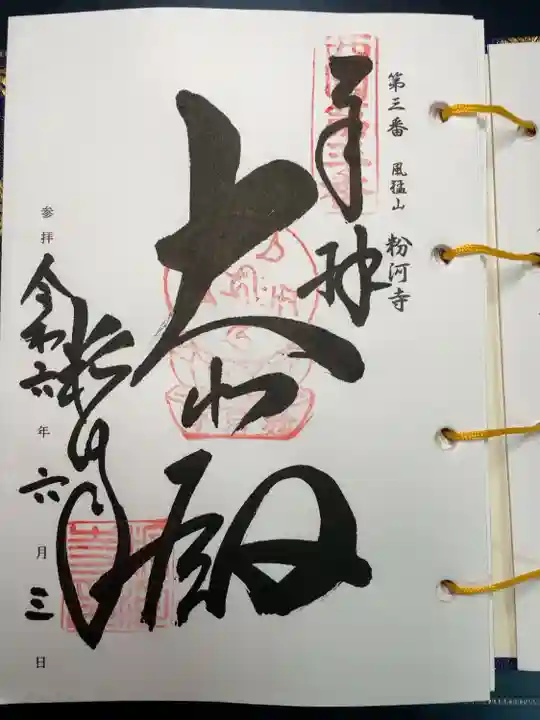 第三番 風猛山 粉河寺
奉拝
大悲殿
粉河寺
参拝 令和六年六月三日